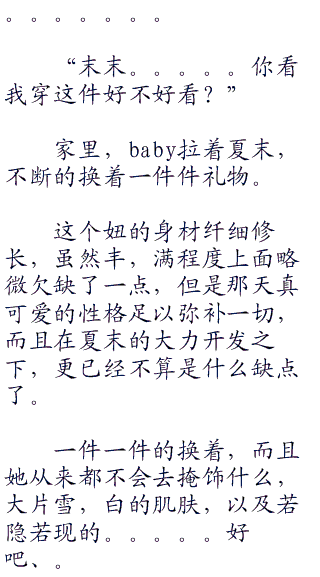 。。。。。。。
“末末。。。。。你看
我穿这件好不好看？”
家里，baby拉着夏末，
不断的换着一件件礼物。
这个妞的身材纤细修
长，虽然丰，满程度上面略
微欠缺了一点，但是那天真
可爱的性格足以弥补一切，
而且在夏末的大力开发之
下，更已经不算是什么缺点
了。
一件一件的换着，而且
她从来都不会去掩饰什么，
大片雪，白的肌肤，以及若
隐若现的。。。。。好
吧、。